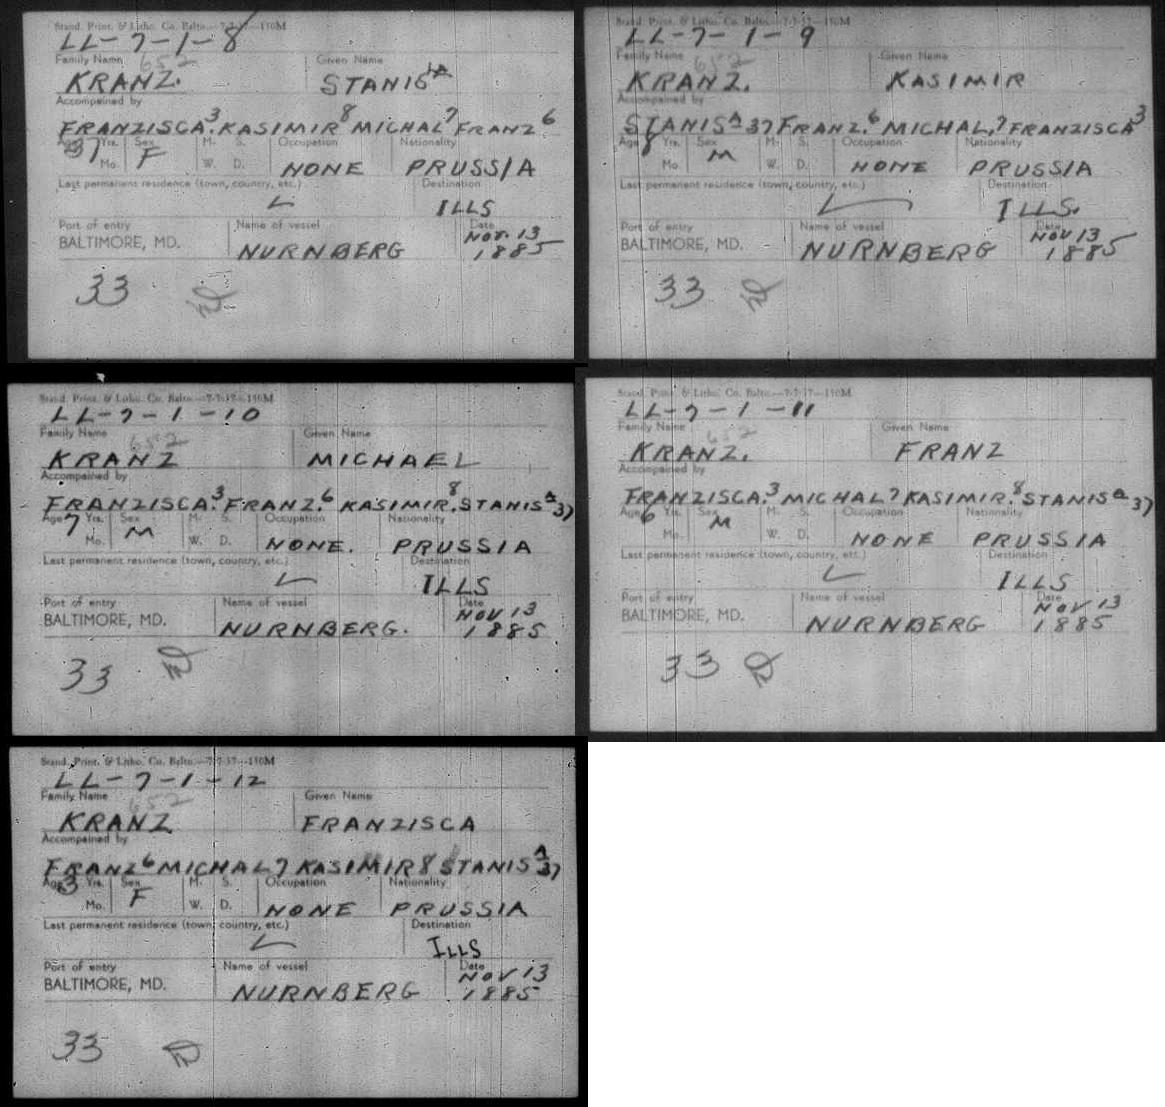 Stand. Print. & Litho. Co. Balto.—7-7-37—150M
LL-7-1-8
Family Name 652 Given Name
KRANZ. STANISᴬ
Accompained by
FRANZISCA³. KASIMIR⁸ MICHAL⁷ FRANZ⁶
Age 37 Yrs. Sex F M. S. Occupation Nationality
Mo. W. D. NONE PRUSSIA
Last permanent residence (town, country, etc.) Destination
ILLS
Port of entry Name of vessel Date
BALTIMORE, MD. NURNBERG NOV. 13 1885
33
Stand. Print. & Litho. Co. Balto.—7-7-37—150M
LL-7-1-9
Family Name 652 Given Name
KRANZ. KASIMIR
Accompained by
STANISᴬ 37 FRANZ.⁶ MICHAL,⁷ FRANZISCA³
Age 8 Yrs. Sex M M. S. Occupation Nationality
Mo. W. D. NONE PRUSSIA
Last permanent residence (town, country, etc.) Destination
ILLS.
Port of entry Name of vessel Date
BALTIMORE, MD. NURNBERG NOV 13 1885
33
Stand. Print. & Litho. Co. Balto.—7-7-37—150M
LL-7-1-10
Family Name 652 Given Name
KRANZ MICHAEL
Accompained by
FRANZISCA.³ FRANZ.⁶ KASIMIR.⁸ STANISᴬ 37
Age 7 Yrs. Sex M M. S. Occupation Nationality
Mo. W. D. NONE. PRUSSIA
Last permanent residence (town, country, etc.) Destination
ILLS
Port of entry Name of vessel Date
BALTIMORE, MD. NURNBERG. NOV 13 1885
33
Stand. Print. & Litho. Co. Balto.—7-7-37—150M
LL-7-1-11
Family Name 652 Given Name
KRANZ. FRANZ
Accompained by
FRANZISCA.³ MICHAL 7 KASIMIR.⁸ STANISᴬ 37
Age 6 Yrs. Sex M M. S. Occupation Nationality
Mo. W. D. NONE PRUSSIA
Last permanent residence (town, country, etc.) Destination
ILLS
Port of entry Name of vessel Date
BALTIMORE, MD. NURNBERG NOV 13 1885
33
Stand. Print. & Litho. Co. Balto.—7-7-37—150M
LL-7-1-12
Family Name 652 Given Name
KRANZ FRANZISCA
Accompained by
FRANZ⁶ MICHAL 7 KASIMIR 8 STANISᴬ 37
Age 3 Yrs. Sex F M. S. Occupation Nationality
Mo. W. D. NONE PRUSSIA
Last permanent residence (town, country, etc.) Destination
ILLS
Port of entry Name of vessel Date
BALTIMORE, MD. NURNBERG NOV 13 1885
33